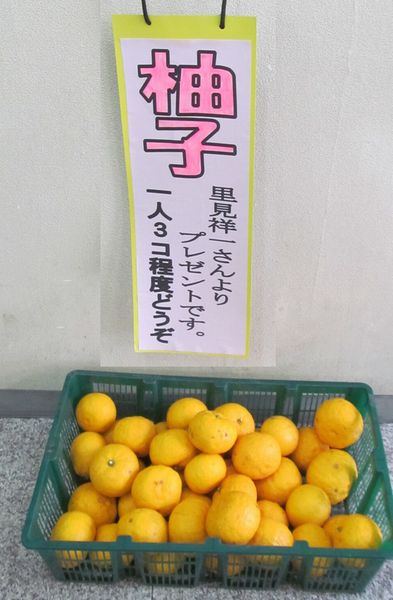 柚子
里見祥一さんより
プレゼントです。
一人3コ程度どうぞ